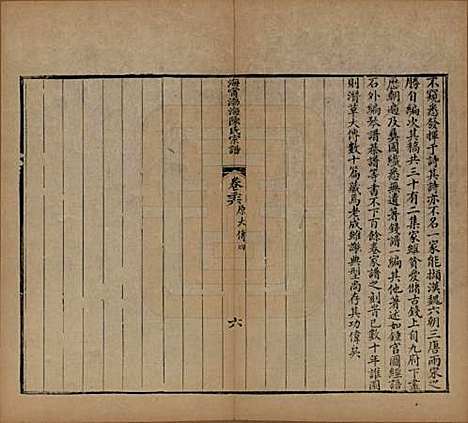 不窺悉發揮于詩其詩亦不名一家能擷漢魏六朝三唐兩宋之
勝自編次其稿共三十有二集家雖貧愛儲古錢上自九府下迄
歷朝遠及彝國靡悉無遺著錢譜一編其他著述如鍾官圖經語
石外編琴譜碁譜等書不下百餘卷家譜之刻胥已數十年誰圖
則潛草大傳數十篇藏焉老成雖謝典型尚存其功偉矣
海寧渤海陳氏宗譜
卷 原大傳四
六